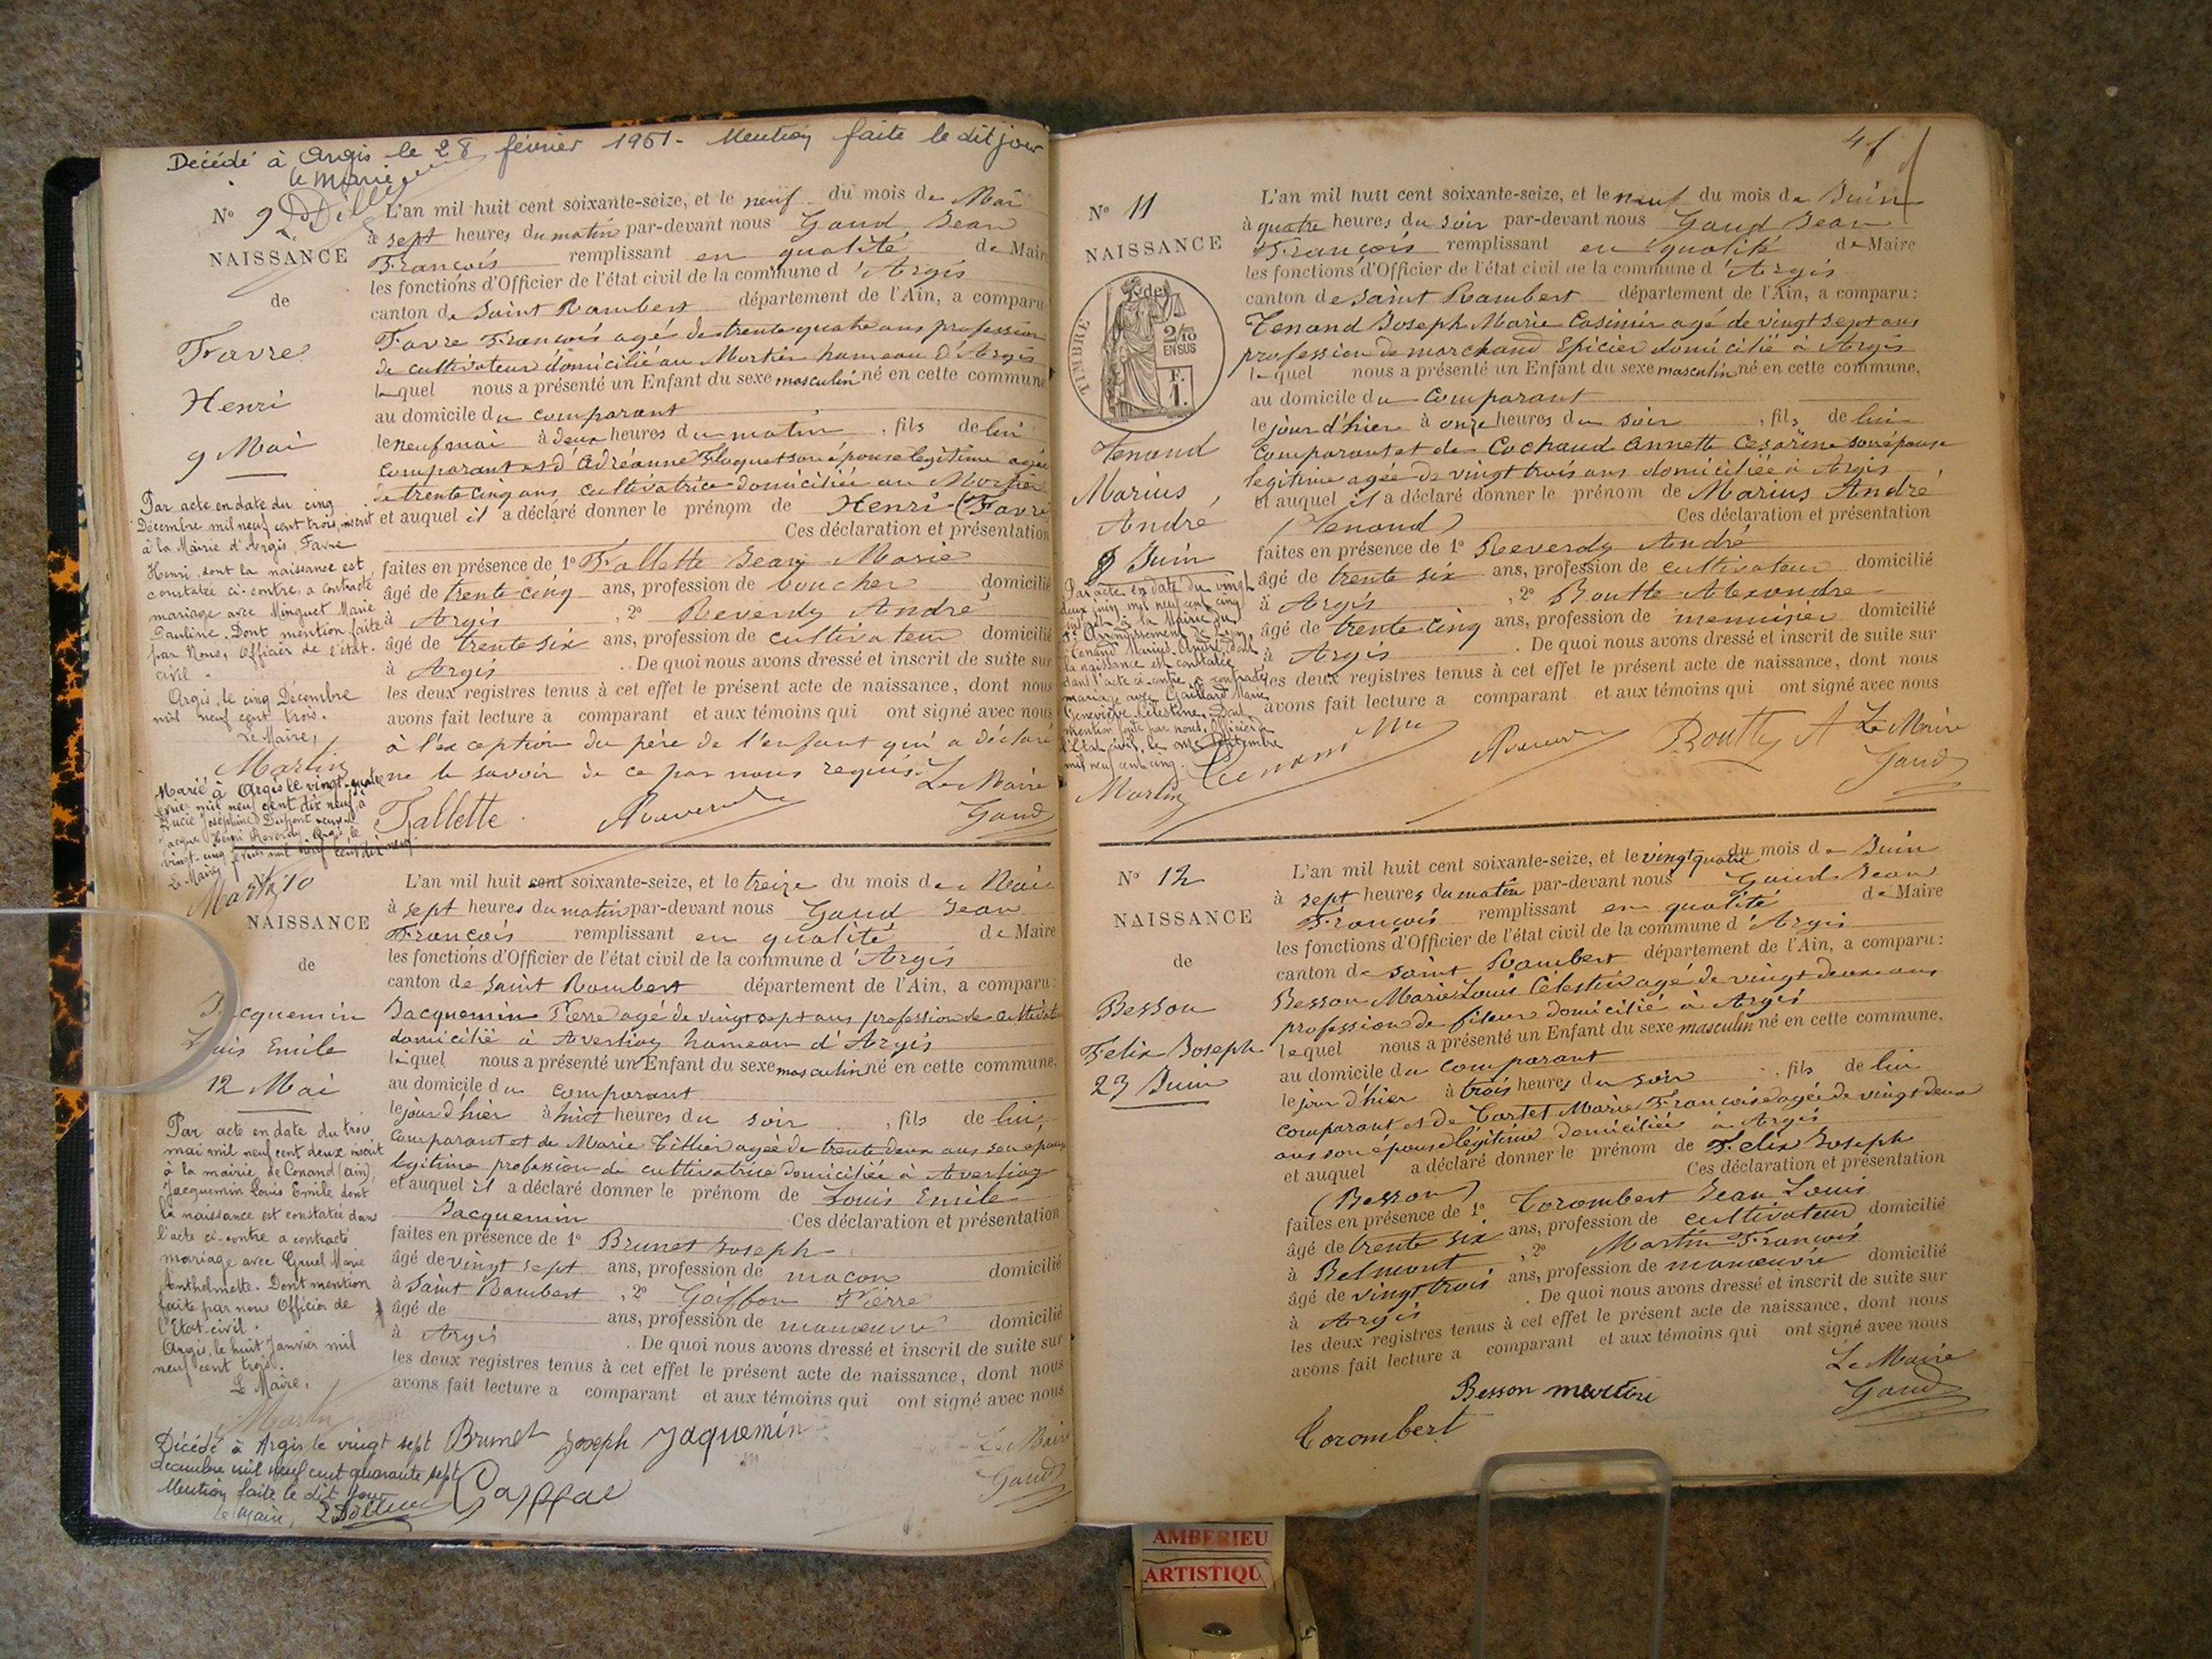 Décédé à Argis le 28 février 1951 - Mention faite le dit jour
le Maire
N° 9
NAISSANCE
de
Favre
Henri
9 Mai
Par acte en date du cinq
Décembre mil neuf cent trois, inscrit
à la Mairie d'Argis, Favre
Henri, dont la naissance est
constatée ci-contre, a contracté
mariage avec Minguet Marie
Pauline. Dont mention faite
par Nous, Officier de l'état-
civil.
Argis, le cinq Décembre
mil neuf cent trois.
Le Maire,
Martin
Marié à Argis le vingt-quatre
février mil neuf cent dix neuf à
Lucie Joséphine Dupont veuve
Jacques Henri Reverdy. Argis, le
vingt-cinq février mil neuf cent dix neuf
Le Maire
L'an mil huit cent soixante-seize, et le neuf du mois de Mai
à sept heures du matin par-devant nous Gaud Jean
François remplissant en qualité de Maire
les fonctions d'Officier de l'état civil de la commune d'Argis
canton de Saint Rambert département de l'Ain, a comparu
Favre François agé de trente quatre ans profession
de cultivateur domicilié au Mortier hameau d'Argis
lequel nous a présenté un Enfant du sexe masculin né en cette commune
au domicile du comparant
le neuf mai à deux heures du matin, fils de lui
comparant et d'Adréanne Floquet son épouse legitime agée
de trente cinq ans, cultivatrice domiciliée au Mortier
et auquel il a déclaré donner le prénom de Henri (Favre)
Ces déclaration et présentation
faites en présence de 1° Fallette Jean Marie
âgé de trente cinq ans, profession de boucher domicilié
à Argis, 2° Reverdy André
âgé de trente six ans, profession de cultivateur domicilié
à Argis. De quoi nous avons dressé et inscrit de suite sur
les deux registres tenus à cet effet le présent acte de naissance, dont nous
avons fait lecture a comparant et aux témoins qui ont signé avec nous
à l'exception du père de l'enfant qui a déclaré
ne le savoir de ce par nous requis. Le Maire
Fallette Gaud
N° 10
Martin
NAISSANCE
de
Jacquemin
Louis Emile
12 Mai
Par acte en date du trois
mai mil neuf cent deux inscrit
à la mairie de Conand (Ain),
Jacquemin Louis Emile dont
la naissance est constatée dans
l'acte ci-contre a contracté
mariage avec Gruel Marie
Anthelmette. Dont mention
faite par nous Officier de
l'Etat-civil.
Argis, le huit Janvier mil
neuf cent trois.
Le Maire,
Martin
Décédé à Argis le vingt sept
décembre mil neuf cent quarante sept
Mention faite le dit jour
le Maire,
L'an mil huit cent soixante-seize, et le treize du mois de Mai
à sept heures du matin par-devant nous Gaud Jean
François remplissant en qualité de Maire
les fonctions d'Officier de l'état civil de la commune d'Argis
canton de Saint Rambert département de l'Ain, a comparu:
Jacquemin Pierre agé de vingt sept ans profession de cultivat
domicilié à Averliaz hameau d'Argis
lequel nous a présenté un Enfant du sexe masculin né en cette commune,
au domicile du comparant
le jour d'hier à huit heures du soir, fils de lui,
comparant et de Marie Tillier agée de trente deux ans son épouse
legitime profession de cultivatrice domiciliée à Averliaz
et auquel il a déclaré donner le prénom de Louis Emile
Jacquemin Ces déclaration et présentation
faites en présence de 1° Brunet Joseph
âgé de vingt sept ans, profession de maçon domicilié
à Saint Rambert, 2° Goiffon Pierre
âgé de ans, profession de manœuvre domicilié
à Argis. De quoi nous avons dressé et inscrit de suite sur
les deux registres tenus à cet effet le présent acte de naissance, dont nous
avons fait lecture a comparant et aux témoins qui ont signé avec nous
Brunet Joseph Jaquemin
Le Maire
Gaud
41
N° 11
NAISSANCE
TIMBRE
2/10
EN SUS
F.
1.
Tenand
Marius,
André
8 Juin
Par acte en date du vingt
deux juin mil neuf cent cinq
inscrit à la Mairie du
5e Arrondissement de Lyon,
Tenand Marius André, dont
la naissance est constatée
dans l'acte ci-contre, a contracté
mariage avec Gaillard Marie
Geneviève Célestine. Dont
mention faite par nous, Officier de
l'Etat civil, le onze Septembre
mil neuf cent cinq.
Martin
L'an mil huit cent soixante-seize, et le neuf du mois de Juin
à quatre heures du soir par-devant nous Gaud Jean
François remplissant en qualité de Maire
les fonctions d'Officier de l'état civil de la commune d'Argis
canton de Saint Rambert département de l'Ain, a comparu:
Tenand Joseph Marie Casimir agé de vingt sept ans
profession de marchand Epicier domicilié à Argis
lequel nous a présenté un Enfant du sexe masculin né en cette commune,
au domicile du Comparant
le jour d'hier à onze heures du soir, fils de lui
Comparant et de Cochaud Annette Cesarine son épouse
legitime agée de vingt trois ans domiciliée à Argis,
et auquel il a déclaré donner le prénom de Marius André
(Tenand) Ces déclaration et présentation
faites en présence de 1° Reverdy André
âgé de trente six ans, profession de cultivateur domicilié
à Argis, 2° Boutte Alexandre
âgé de trente cinq ans, profession de menuisier domicilié
à Argis. De quoi nous avons dressé et inscrit de suite sur
les deux registres tenus à cet effet le présent acte de naissance, dont nous
avons fait lecture a comparant et aux témoins qui ont signé avec nous
Tenand Boutty A Le Maire
Gaud
N° 12
NAISSANCE
de
Besson
Felix Joseph
23 Juin
L'an mil huit cent soixante-seize, et le vingt quatre du mois de Juin
à sept heures du matin par-devant nous Gaud Jean
François remplissant en qualité de Maire
les fonctions d'Officier de l'état civil de la commune d'Argis
canton de Saint Rambert département de l'Ain, a comparu:
Besson Marie Louis Célestin agé de vingt deux ans
profession de fileur domicilié à Argis
lequel nous a présenté un Enfant du sexe masculin né en cette commune,
au domicile du comparant
le jour d'hier à trois heures du soir, fils de lui
comparant et de Tartet Marie Françoise agée de vingt deux
ans son épouse légitime domiciliée à Argis
et auquel a déclaré donner le prénom de Felix Joseph
(Besson) Ces déclaration et présentation
faites en présence de 1° Corombert Jean Louis
âgé de trente six ans, profession de cultivateur domicilié
à Belmont, 2° Martin François
âgé de vingt trois ans, profession de manœuvre domicilié
à Argis. De quoi nous avons dressé et inscrit de suite sur
les deux registres tenus à cet effet le présent acte de naissance, dont nous
avons fait lecture a comparant et aux témoins qui ont signé avec nous
Le Maire
Besson Gaud
Corombert
AMBERIEU
ARTISTIQU